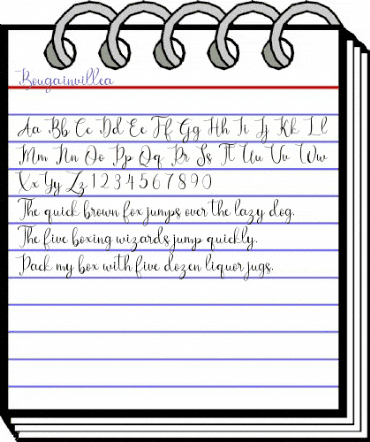 Bougainvillea
Aa Bb Cc Dd Ee Ff Gg Hh Ii Jj Kk Ll
Mm Nn Oo Pp Qq Rr Ss Tt Uu Vv Ww
Xx Yy Zz 1 2 3 4 5 6 7 8 9 0
The quick brown fox jumps over the lazy dog.
The five boxing wizards jump quickly.
Pack my box with five dozen liquor jugs.